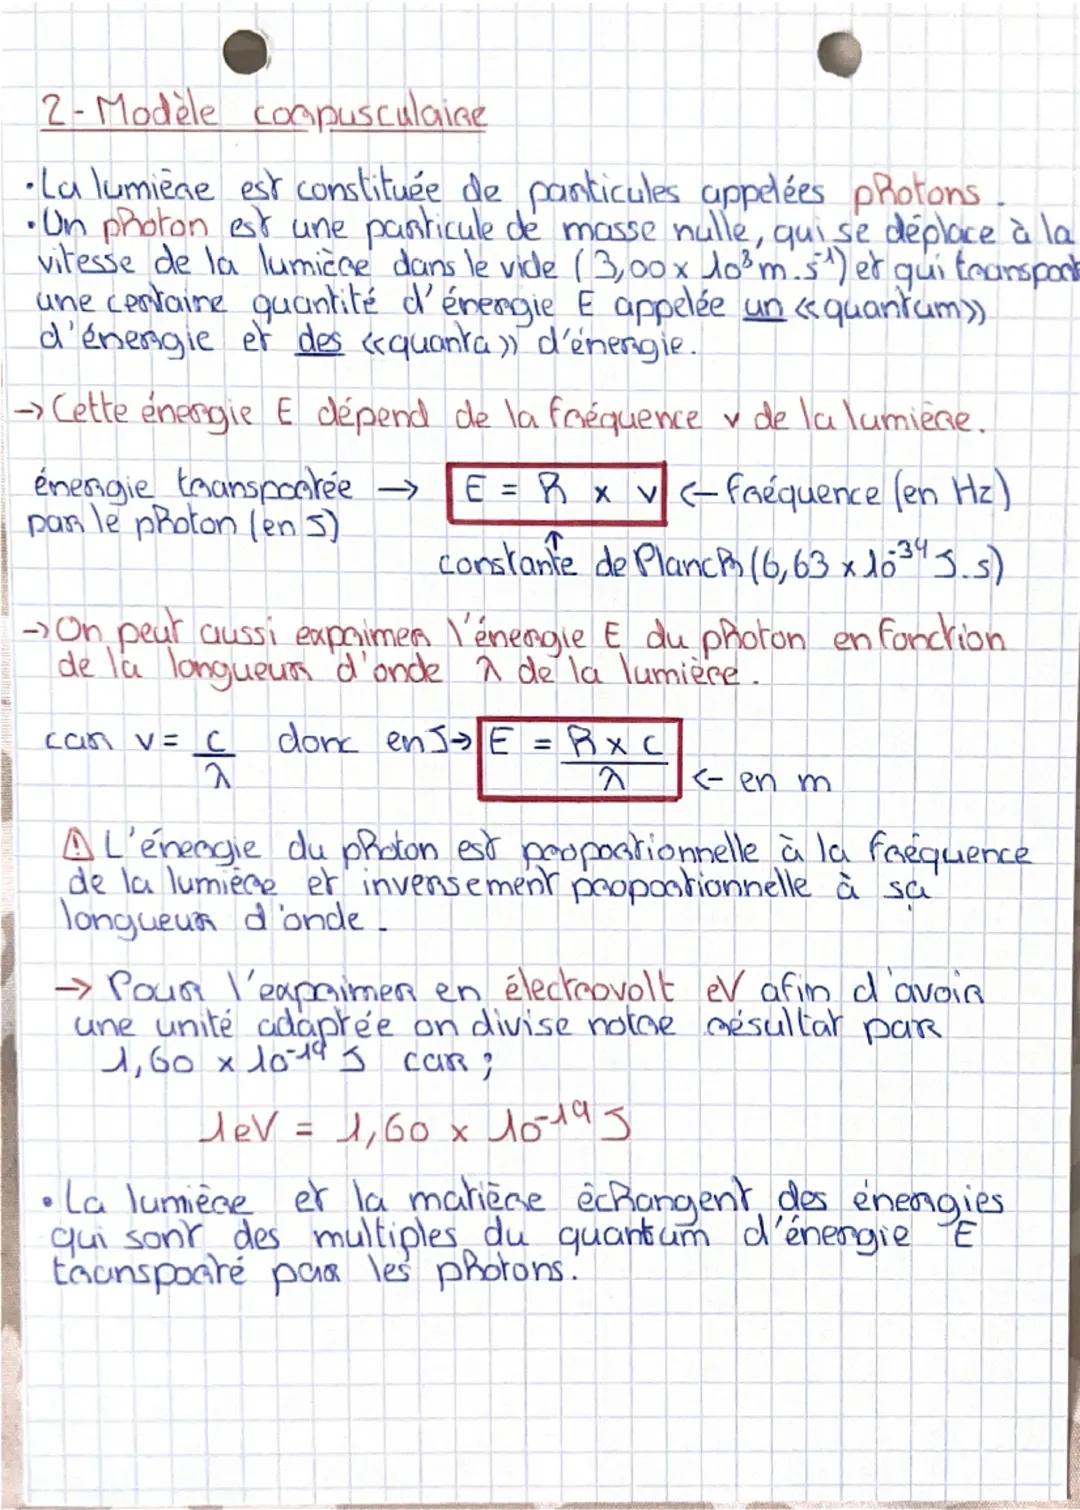 2-Modèle corpusculaire
•La lumière est constituée de particules appelées photons.
•Un photon est une particule de masse nulle, qui se déplace à la
vitesse de la lumière dans le vide (3,00 x 10³ m.s⁻¹) et qui transport
une certaine quantité d'énergie E appelée un «quantum»
d'énergie et des «quanta» d'énergie.
→ Cette énergie E dépend de la fréquence ν de la lumière.
énergie transportée → E = h x ν ← fréquence (en Hz)
par le photon (en J)
↑
constante de Planch (6,63 x 10⁻³⁴ J.s)
→ On peut aussi exprimer l'énergie E du photon en fonction
de la longueur d'onde λ de la lumière.
car ν = c/λ donc en J → E = h x c/λ ← en m
⚠ L'énergie du photon est proportionnelle à la fréquence
de la lumière et inversement proportionnelle à sa
longueur d'onde.
→ Pour l'exprimer en électrovolt eV afin d'avoir
une unité adaptée on divise notre résultat par
1,60 x 10⁻¹⁹ J car ;
1eV = 1,60 x 10⁻¹⁹ J
•La lumière et la matière échangent des énergies
qui sont des multiples du quantum d'énergie E
transporté par les photons.